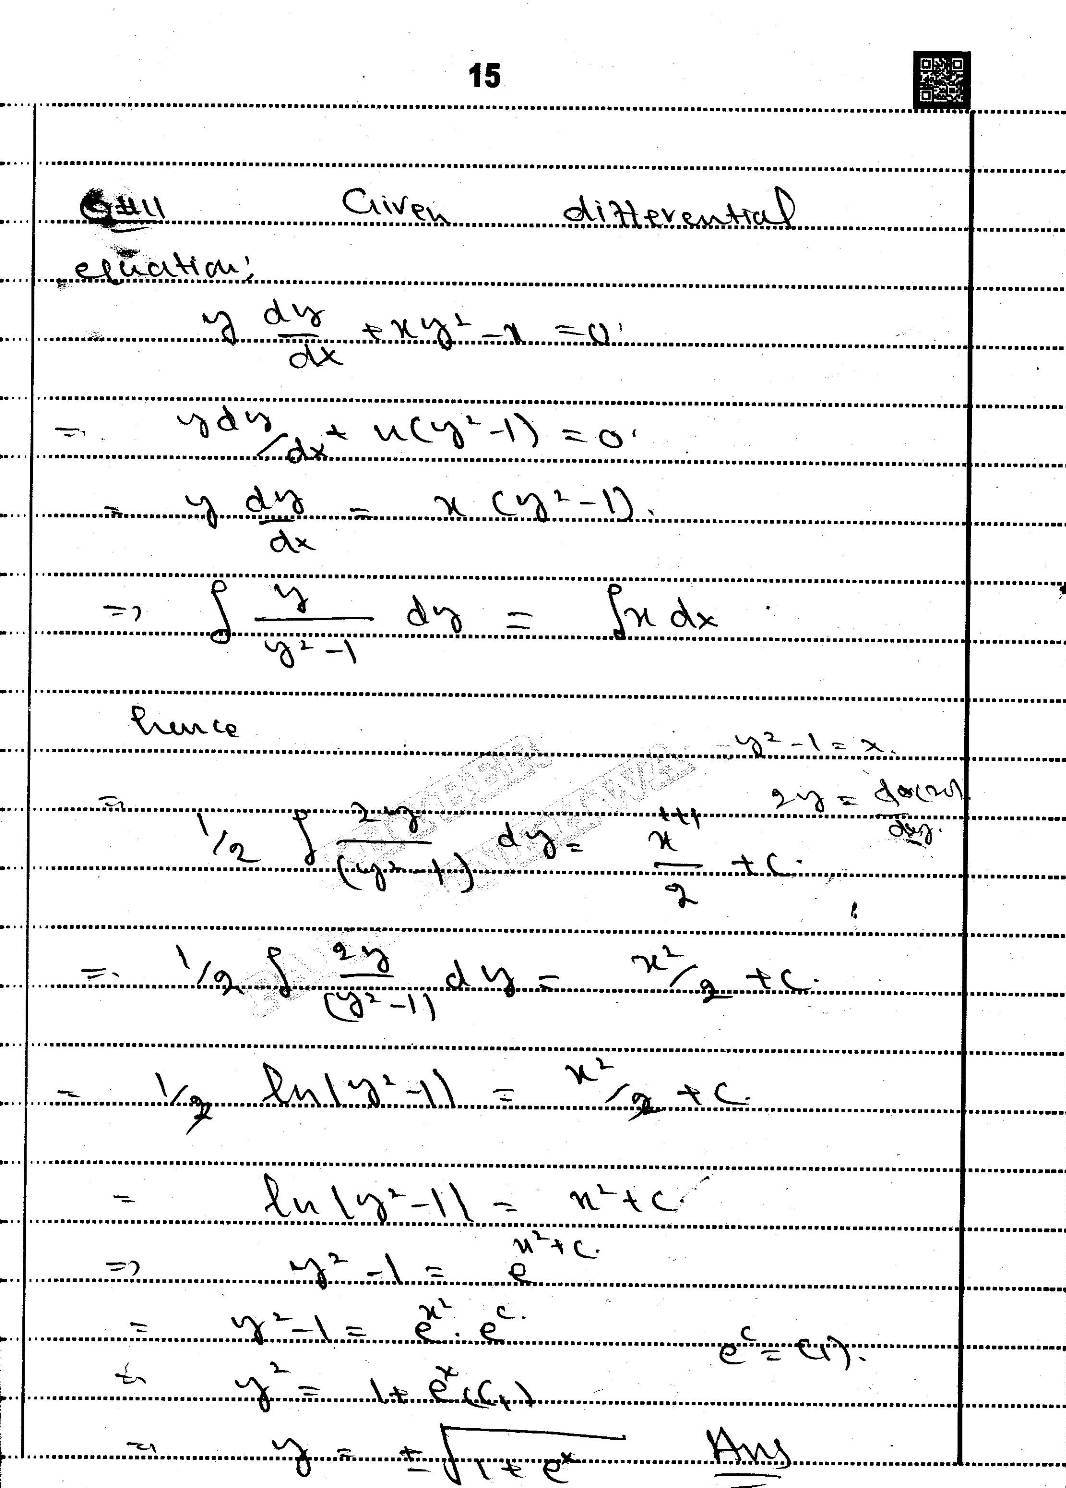 15
Q#11 Given differential
equation;
y dy/dx + xy² - x = 0
= y dy/dx + x(y²-1) = 0
= y dy/dx = x (y²-1).
=> ∫ y/(y²-1) dy = ∫x dx
hence
y²-1 = x.
= 1/2 ∫ 2y/(y²-1) dy = x¹⁺¹/2 + C.
2y =
=. 1/2 ∫ 2y/(y²-1) dy = x²/2 + C.
= 1/2 ln|y²-1| = x²/2 + C.
= ln|y²-1| = x² + C.
=> y²-1 = e^(x²+C.)
= y²-1 = e^(x²) . e^(C.)
e^C = C1).
y² = 1 + e^x (C1)
= y = ±√(1 + e^x) Ans